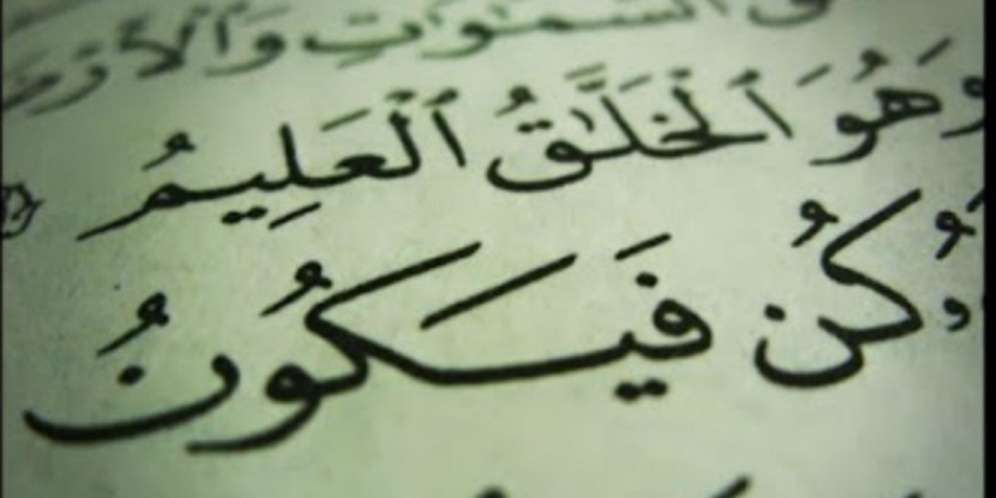 ٱلسَّمَـٰوَٰتِ وَٱلْأَرْضَ
وَهُوَ ٱلْخَلَّـٰقُ ٱلْعَلِيمُ
كُن فَيَكُونُ